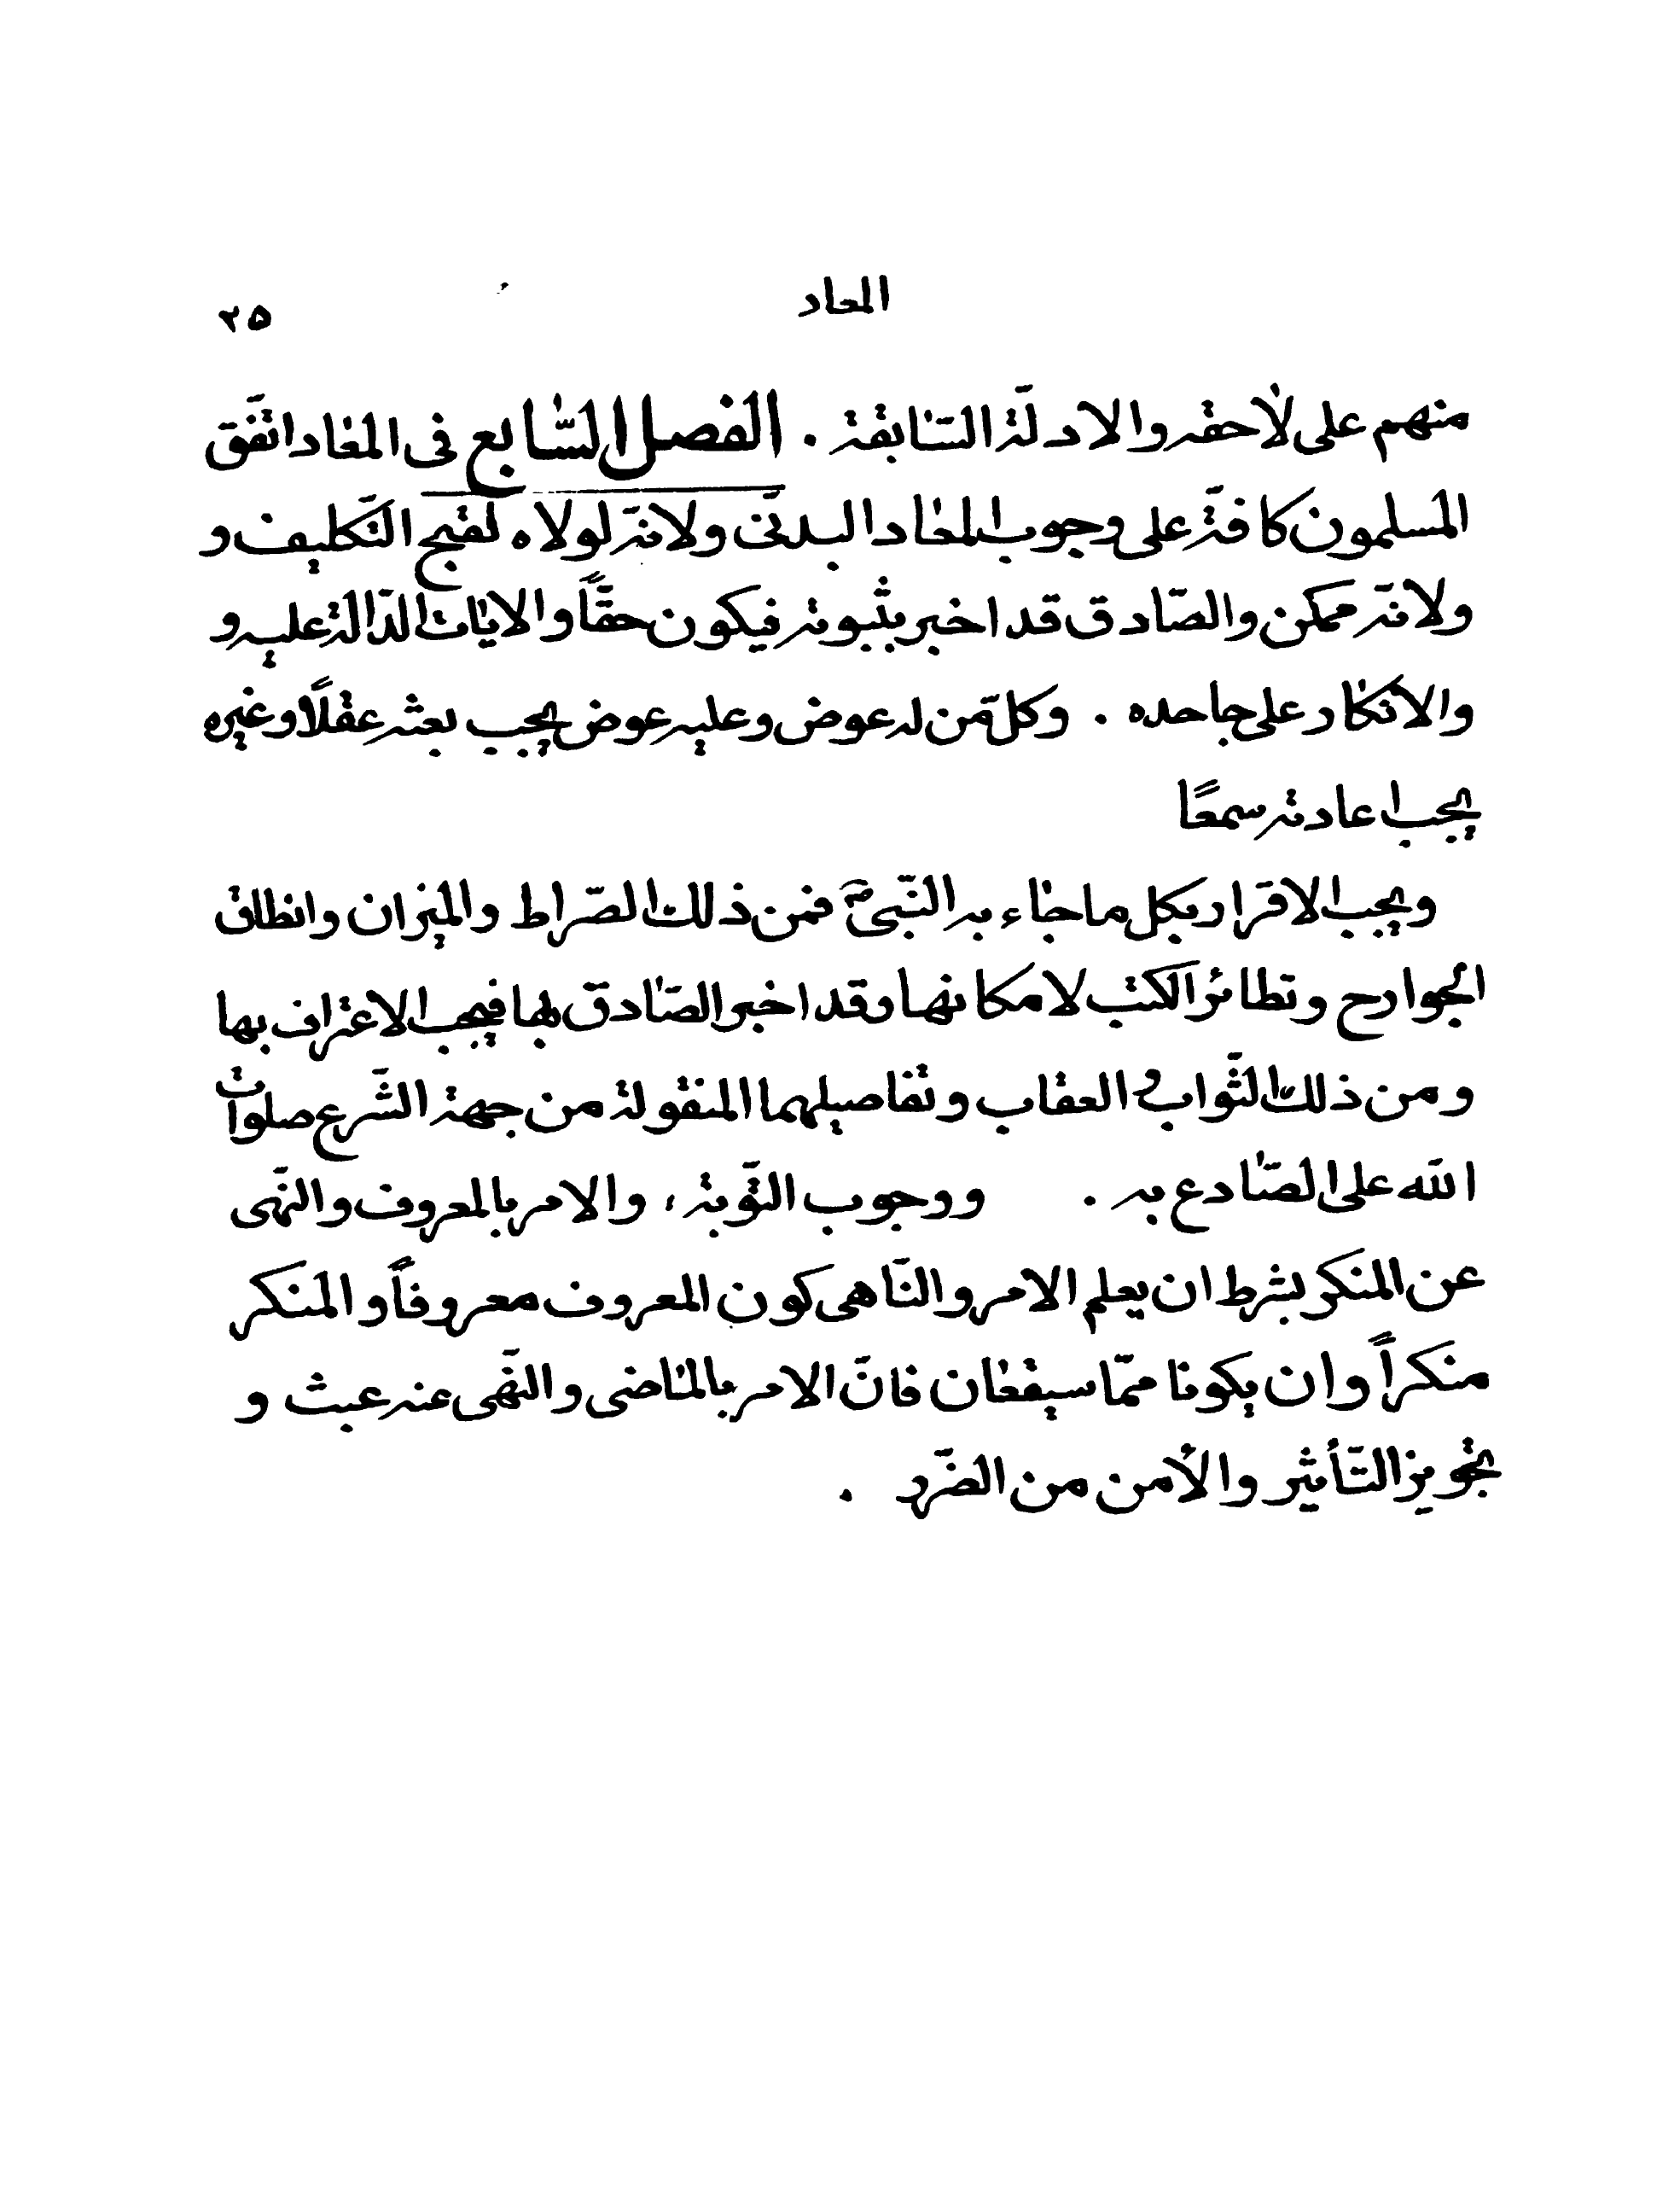 المعاد
٢٥
منهم على لاحقه والادلّة السّابقة . الفصل السّابع فى المعاد اتّفق
المسلمون كافّة على وجوب المعاد البدنىّ ولانّه لولاه لقبح التّكليف و
ولانّه ممكن والصّادق قد اخبر بثبوته فيكون حقّاً والايات الدّالة عليه و
والانكار على جاحده . وكلّ من له عوض وعليه عوض يجب بعثه عقلاً وغيره
يجب اعادته سمعًا
ويجب الاقرار بكل ما جاء به النّبىّ ص فمن ذلك الصّراط والميزان وانطاق
الجوارح وتطائر الكتب لامكانها وقد اخبر الصّادق بها فيجب الاعتراف بها
ومن ذلك الثّواب و العقاب وتفاصيلهما المنقولة من جهة الشّرع صلوات
اللّه على الصّادع به . ووجوب التّوبة، والامر بالمعروف والنّهى
عن المنكر بشرط ان يعلم الامر والنّاهى كون المعروف معروفاً والمنكر
منكراً وان يكونا ممّا سيقعان فانّ الامر بالماضى والنّهى عنه عبث و
تجويز التّأثير والأمن من الضّرر .